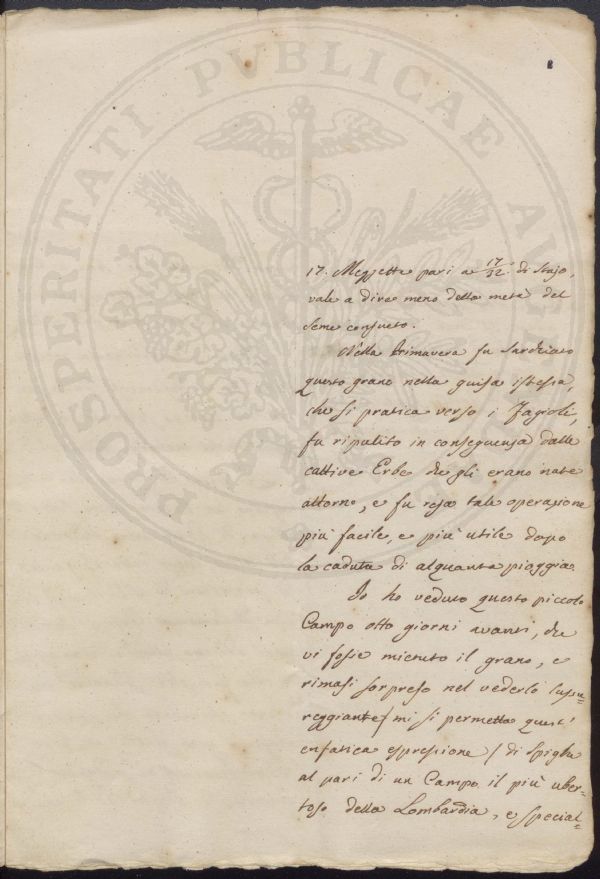 PROSPERITATI PUBLICAE AU
17. Mezzette pari a 17/32 di Stajo,
vale a dire meno della metà del
seme consueto.
Nella Primavera fu Sarchiato
questo grano nella guisa istessa,
che si pratica verso i Fagioli,
fu ripulito in conseguenza dalle
cattive Erbe che gli erano nate
attorno, e fu resa tale operazione
più facile, e più utile dopo
la caduta di alquanta pioggia.
Io ho veduto questo piccolo
Campo otto giorni avanti, che
vi fosse mietuto il grano, e
rimasi sorpreso nel vederlo lussu-
reggiante / mi si permetta quest'
enfatica espressione / di spighe
al pari di un Campo il più uber-
toso della Lombardia, e special-